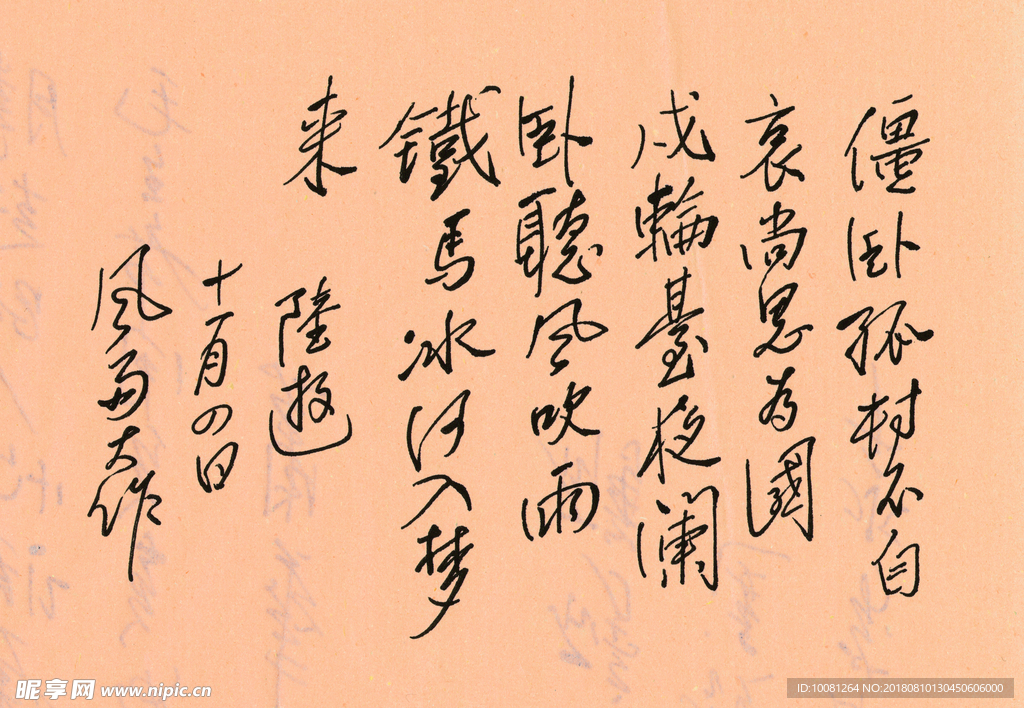 僵卧孤村不自
哀尚思為國
戍輪臺夜闌
卧聽風吹雨
鐵馬冰河入梦
来 陸遊
十一月四日
風雨大作
昵享网 www.nipic.cn
ID:10081264 NO:20180810130450606000